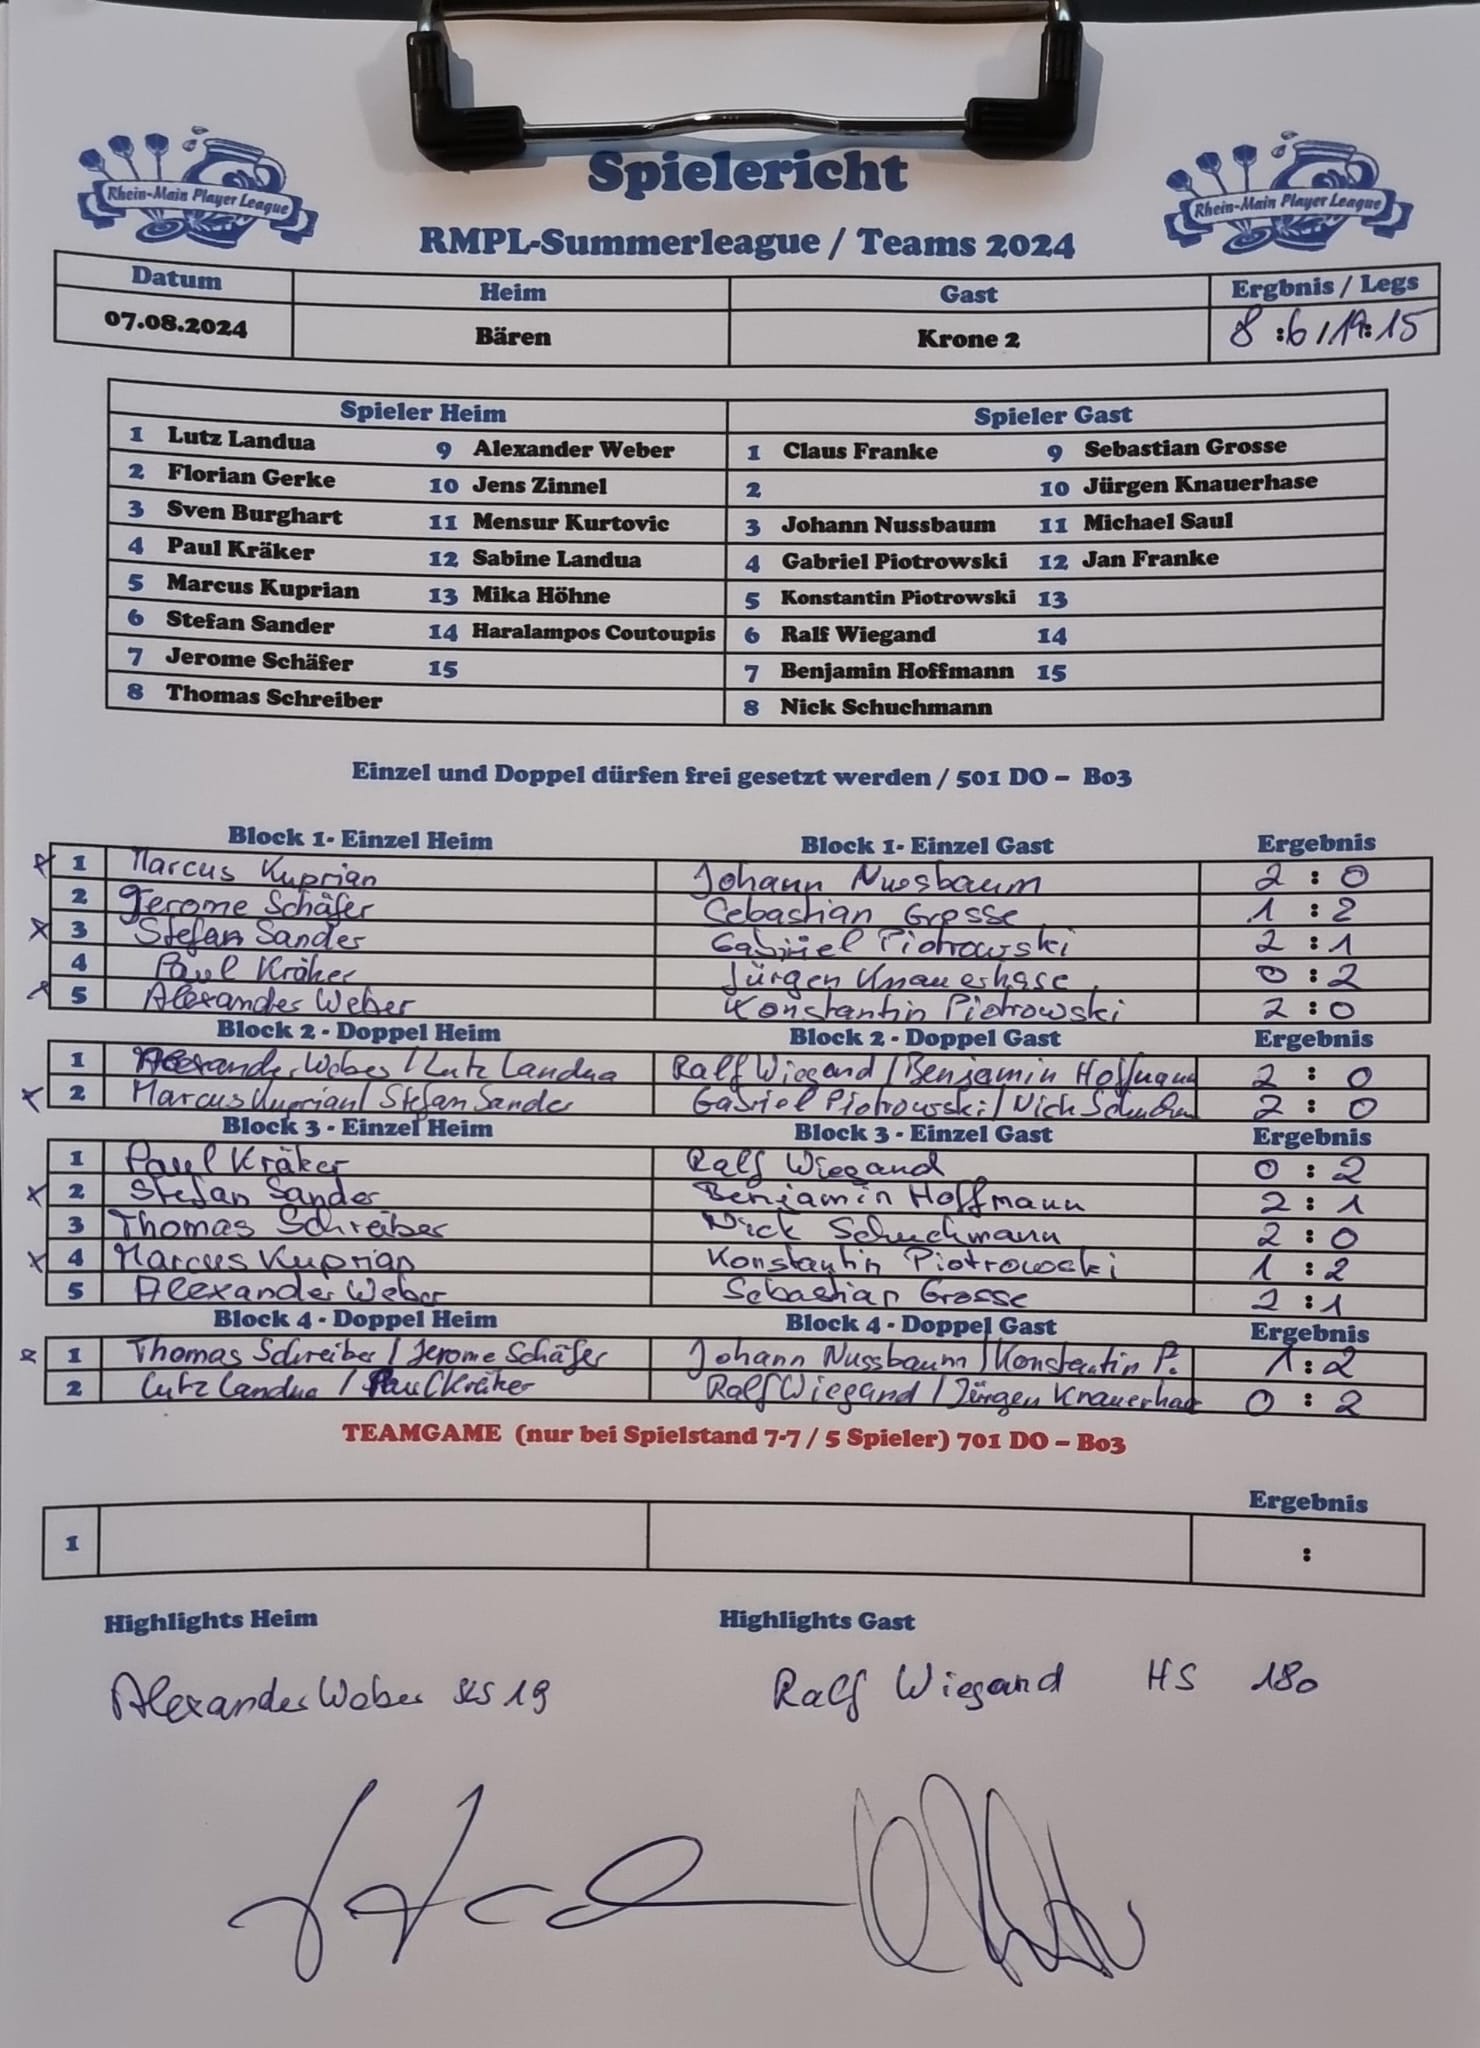 Rhein-Main Player League
Rhein-Main Player League
Spielericht
RMPL-Summerleague / Teams 2024
Datum Heim Gast Ergbnis / Legs
07.08.2024 Bären Krone 2 8 :6 / 19:15
Spieler Heim Spieler Gast
1 Lutz Landua 9 Alexander Weber 1 Claus Franke 9 Sebastian Grosse
2 Florian Gerke 10 Jens Zinnel 2 10 Jürgen Knauerhase
3 Sven Burghart 11 Mensur Kurtovic 3 Johann Nussbaum 11 Michael Saul
4 Paul Kräker 12 Sabine Landua 4 Gabriel Piotrowski 12 Jan Franke
5 Marcus Kuprian 13 Mika Höhne 5 Konstantin Piotrowski 13
6 Stefan Sander 14 Haralampos Coutoupis 6 Ralf Wiegand 14
7 Jerome Schäfer 15 7 Benjamin Hoffmann 15
8 Thomas Schreiber 8 Nick Schuchmann
Einzel und Doppel dürfen frei gesetzt werden / 501 DO – Bo3
Block 1- Einzel Heim Block 1- Einzel Gast Ergebnis
1 Marcus Kuprian Johann Nussbaum 2 : 0
2 Jerome Schäfer Sebastian Grosse 1 : 2
3 Stefan Sander Gabriel Piotrowski 2 : 1
4 Paul Kräker Jürgen Knauerhase 0 : 2
5 Alexander Weber Konstantin Piotrowski 2 : 0
Block 2 - Doppel Heim Block 2 - Doppel Gast Ergebnis
1 Alexander Weber / Lutz Landua Ralf Wiegand / Benjamin Hoffmann 2 : 0
2 Marcus Kuprian / Stefan Sander Gabriel Piotrowski / Nick 2 : 0
Block 3 - Einzel Heim Block 3 - Einzel Gast Ergebnis
1 Paul Kräker Ralf Wiegand 0 : 2
2 Stefan Sander Benjamin Hoffmann 2 : 1
3 Thomas Schreiber Nick Schuchmann 2 : 0
4 Marcus Kuprian Konstantin Piotrowski 1 : 2
5 Alexander Weber Sebastian Grosse 2 : 1
Block 4 - Doppel Heim Block 4 - Doppel Gast Ergebnis
1 Thomas Schreiber / Jerome Schäfer Johann Nussbaum / Konstantin P. 1 : 2
2 Lutz Landua / Paul Kräker Ralf Wiegand / Jürgen Knauerhase 0 : 2
TEAMGAME (nur bei Spielstand 7-7 / 5 Spieler) 701 DO – Bo3
Ergebnis
1 :
Highlights Heim Highlights Gast
Alexander Weber 19 Ralf Wiegand HS 180